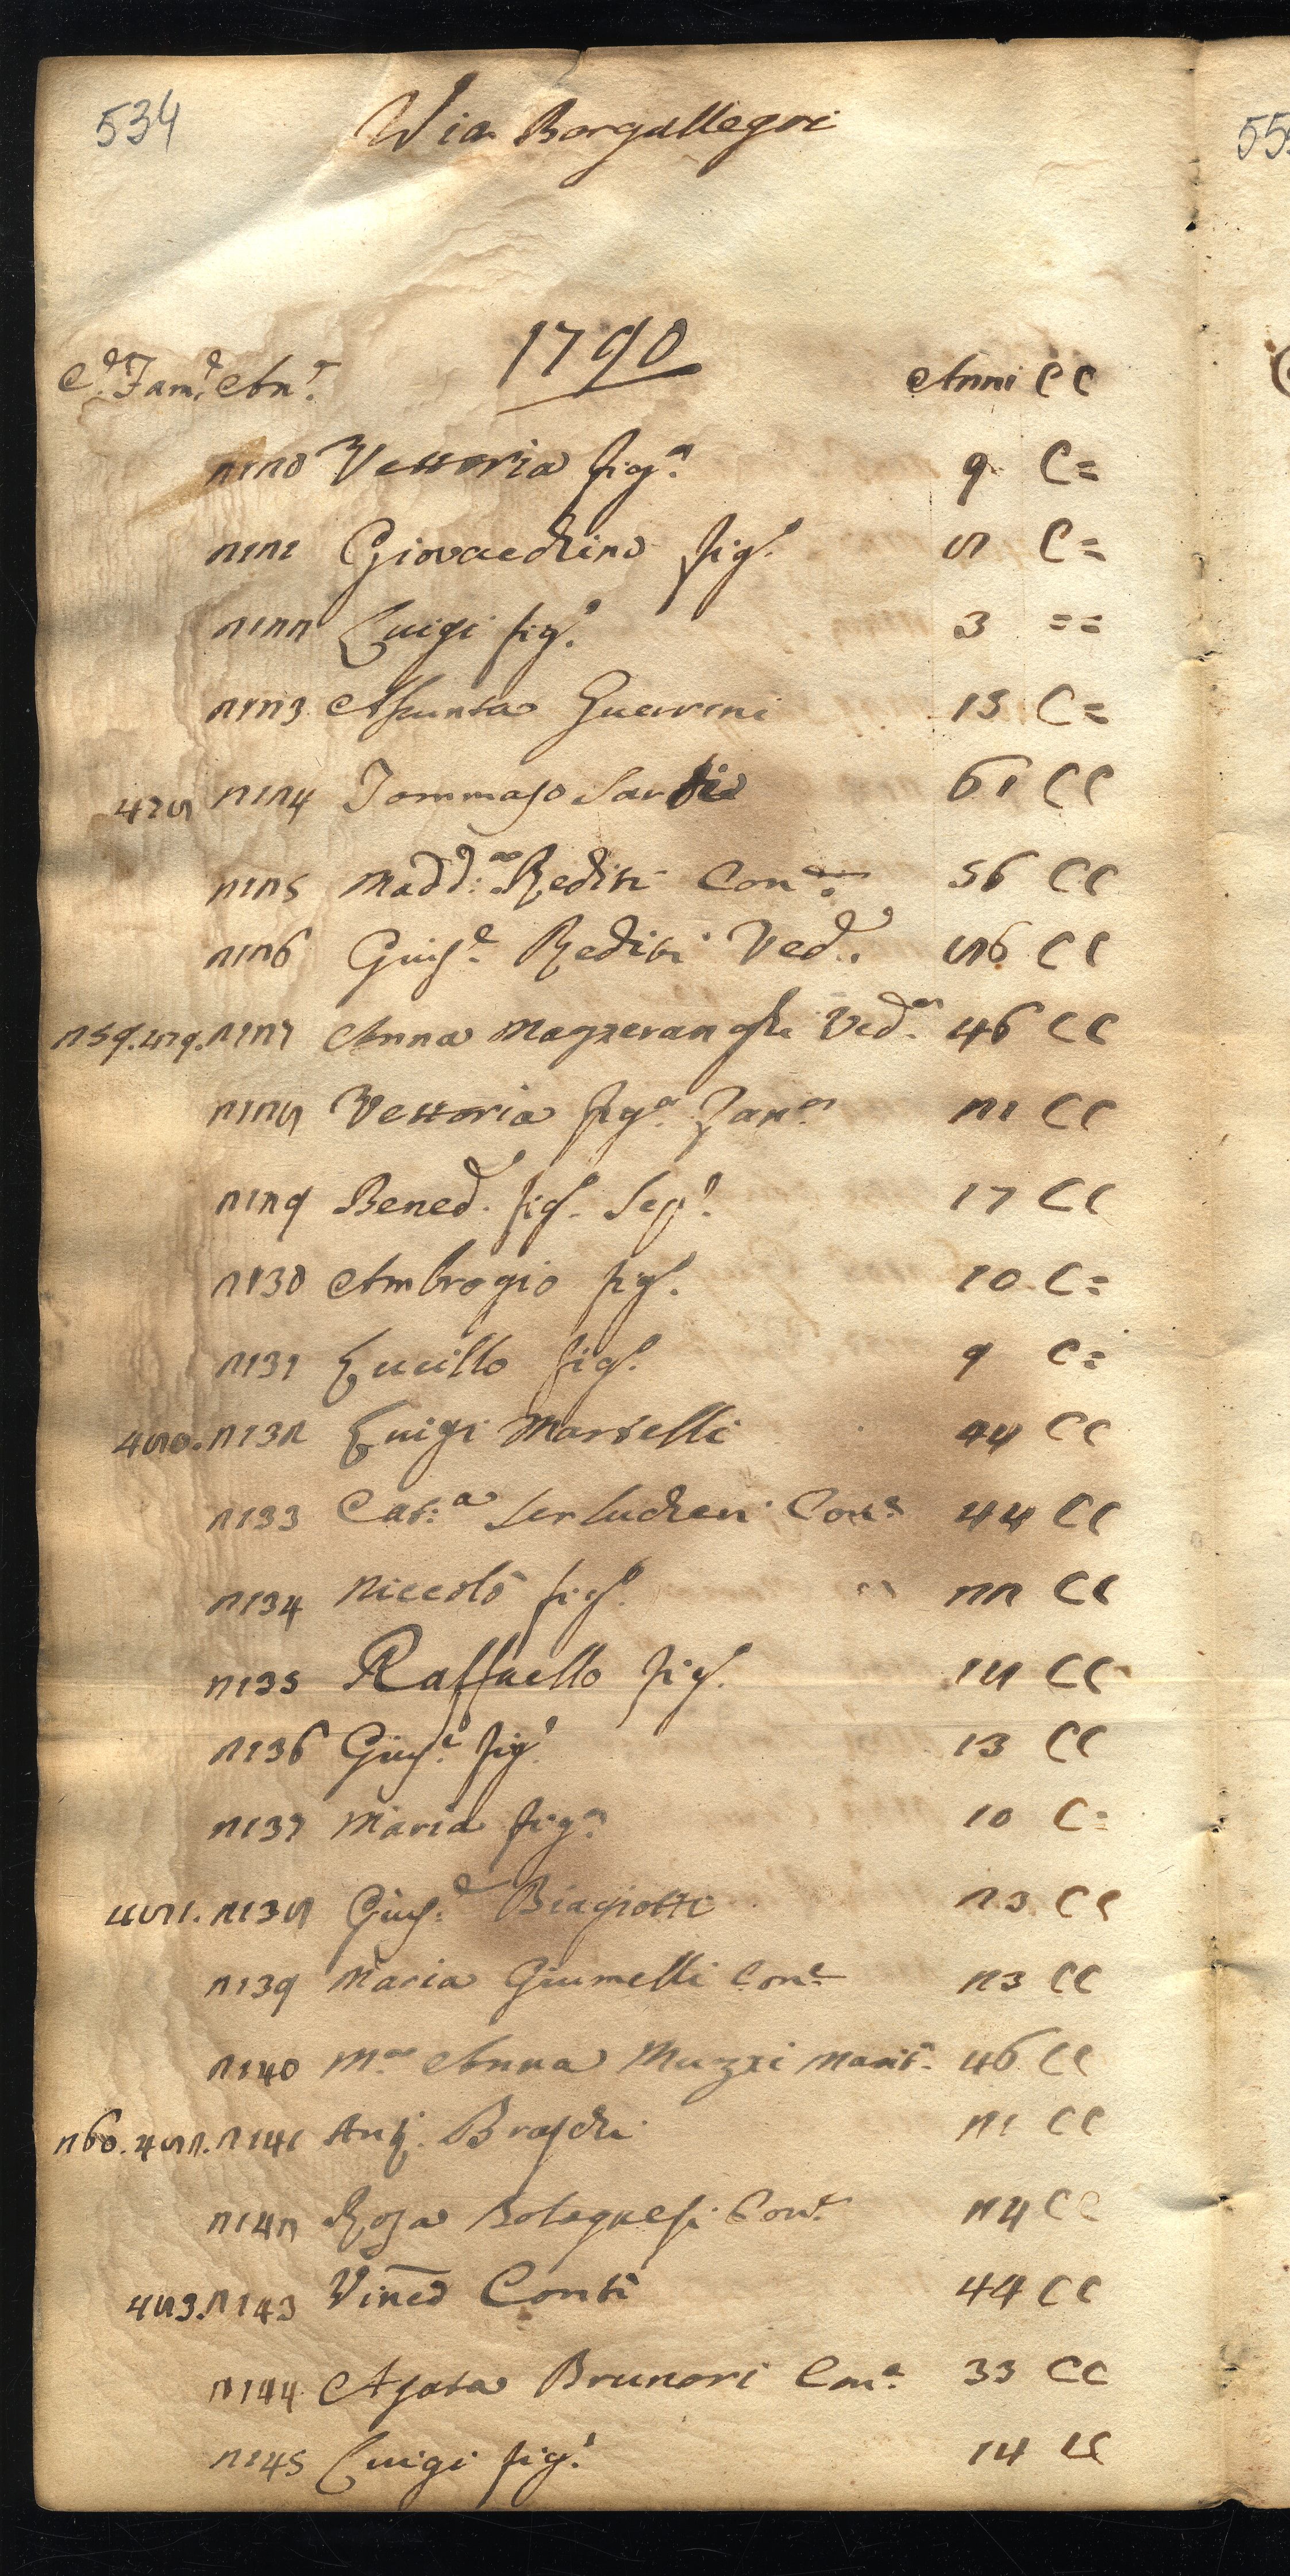 534
Via Borgallegri
55
1790
C.e Fam.e An.e Anni C C
2120 Vettoria fig.a 9 C =
2121 Giovacchino fig.o 8 C =
2122 Luigi fig.o 3 = =
2123 Assunta Guerrini 15 C =
478 2124 Tommaso Sar 61 C C
2125 Madd:a Rediti Con.e 56 C C
2126 Gius.e Rediti Ved.o 86 C C
259. 479. 2127 Anna Mazzeranghi Ved.a 46 C C
2128 Vettoria fig.a Zan.a 21 C C
2129 Bened.o fig.o Seg.o 17 C C
2130 Ambrogio fig.o 10 C =
2131 Lucillo fig.o 9 C =
480. 2132 Luigi Martelli 44 C C
2133 Cat:a Serluchen Con.e 44 C C
2134 Niccolò fig.o 22 C C
2135 Raffaello fig.o 18 C C
2136 Gius.e fig.o 13 C C
2137 Maria fig.a 10 C =
481. 2138 Gius.e Biagiotti 23 C C
2139 Maria Giumelli Con.e 23 C C
2140 M.a Anna Muzzi 46 C C
260. 482. 2141 Ant.o Braschi 21 C C
2142 Rosa Bolognesi Con.e 24 C C
483. 2143 Vinc.o Conti 44 C C
2144 Agata Brunori Con.e 33 C C
2145 Luigi fig.o 14 C C